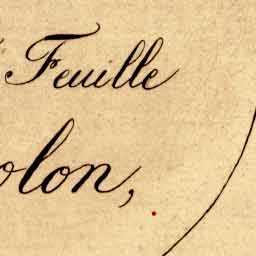 Feuille
olon,